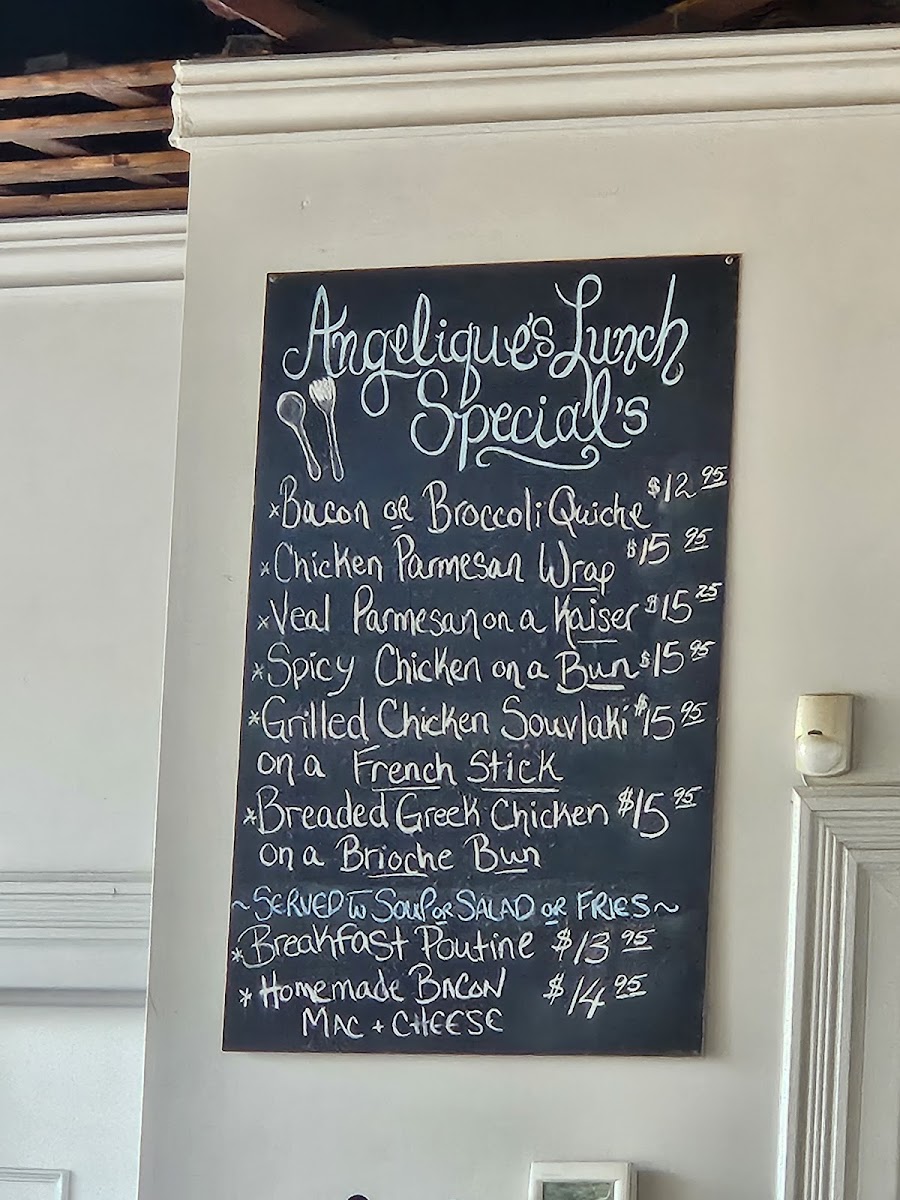 Angelique's Lunch
Special's
*Bacon or Broccoli Quiche $12 95
*Chicken Parmesan Wrap $15 95
*Veal Parmesan on a Kaiser $15 25
*Spicy Chicken on a Bun $15 95
*Grilled Chicken Souvlaki $15 95
on a French Stick
*Breaded Greek Chicken $15 95
on a Brioche Bun
~SERVED w SOUP or SALAD or FRIES~
*Breakfast Poutine $13 95
*Homemade BACON $14 95
MAC + CHEESE